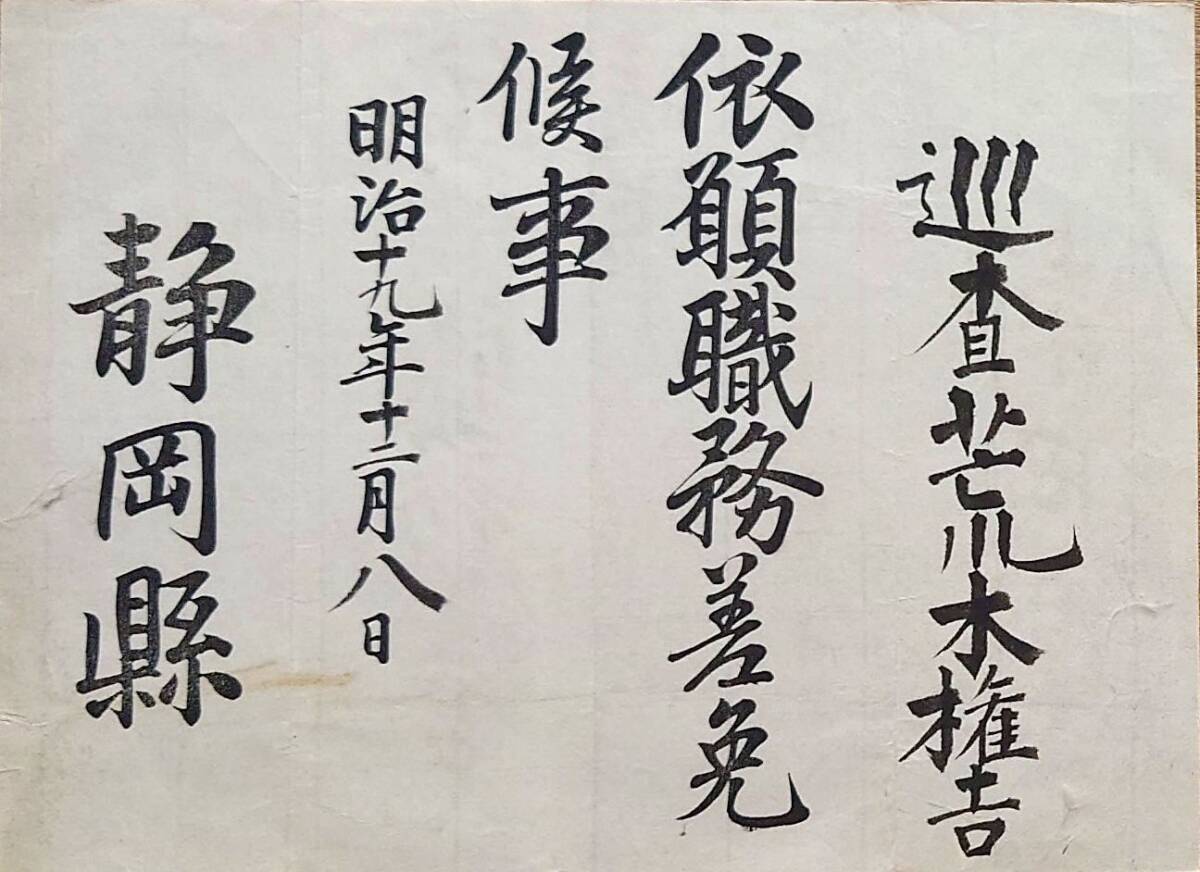 巡査荒木権吉
依願職務差免
候事
明治十九年十二月八日
静岡縣